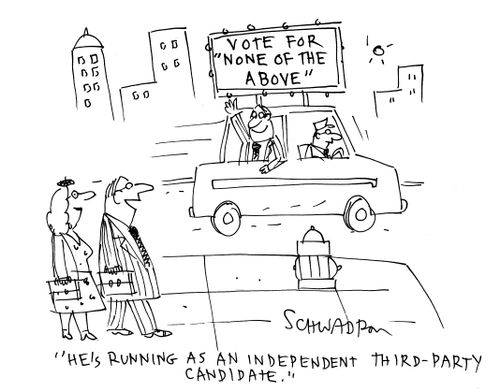 VOTE FOR
"NONE OF THE
ABOVE"
SCHWADRON
"HE'S RUNNING AS AN INDEPENDENT THIRD-PARTY
CANDIDATE."